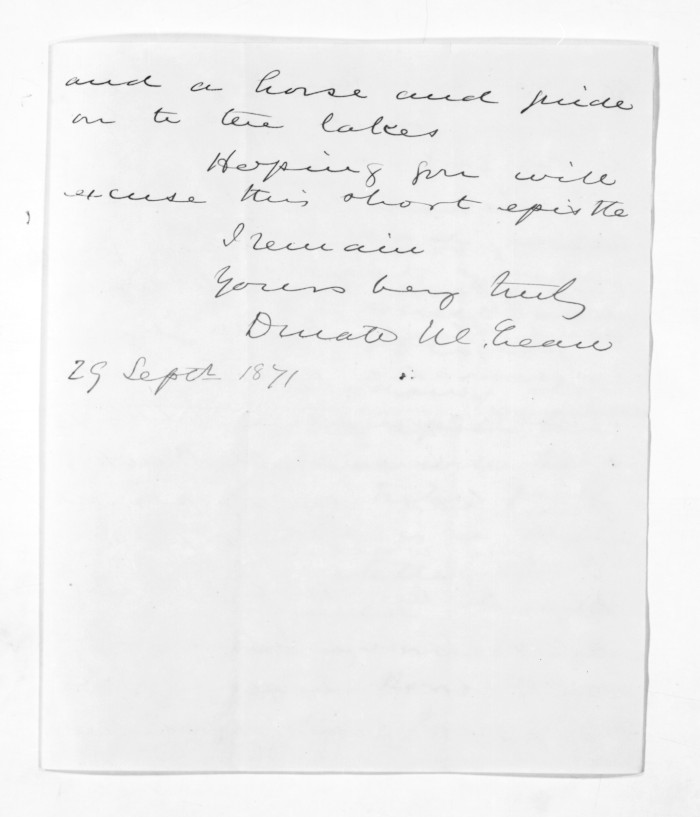 and a horse and guide
on to the lakes
Hoping you will
excuse this short epistle
I remain
Yours very truly
McLean
29 Septr 1871